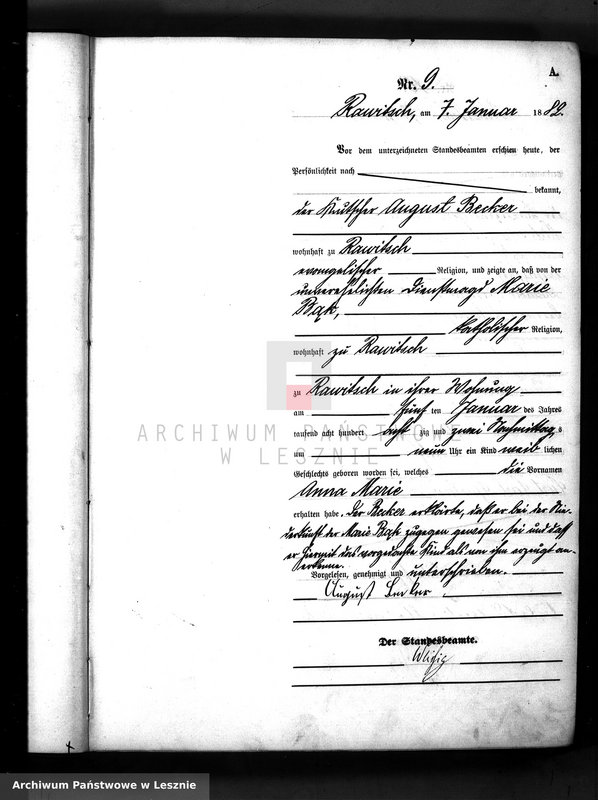 A.
Nr. 9.
Rawitsch, am 7. Januar 1882.
Vor dem unterzeichneten Standesbeamten erschien heute, der
Persönlichkeit nach
bekannt,
der Kutscher August Becker
wohnhaft zu Rawitsch
evangelischer Religion, und zeigte an, daß von der
unverehelichten Dienstmagd Marie
Bąk,
katholischer Religion,
wohnhaft zu Rawitsch
zu Rawitsch in ihrer Wohnung
am fünf ten Januar des Jahres
tausend acht hundert acht zig und zwei Nachmittag s
um neun Uhr ein Kind weib lichen
Geschlechts geboren worden sei, welches die Vornamen
Anna Marie
erhalten habe. Der Becker erklärte, daß er bei der Nie-
derkunft der Marie Bąk zugegen gewesen sei und daß
er hiermit das vorgedachte Kind als von ihm erzeugt an-
erkenne.
Vorgelesen, genehmigt und unterschrieben.
August Becker
Der Standesbeamte.
ARCHIWUM PAŃSTWOWE
W LESZNIE
Archiwum Państwowe w Lesznie